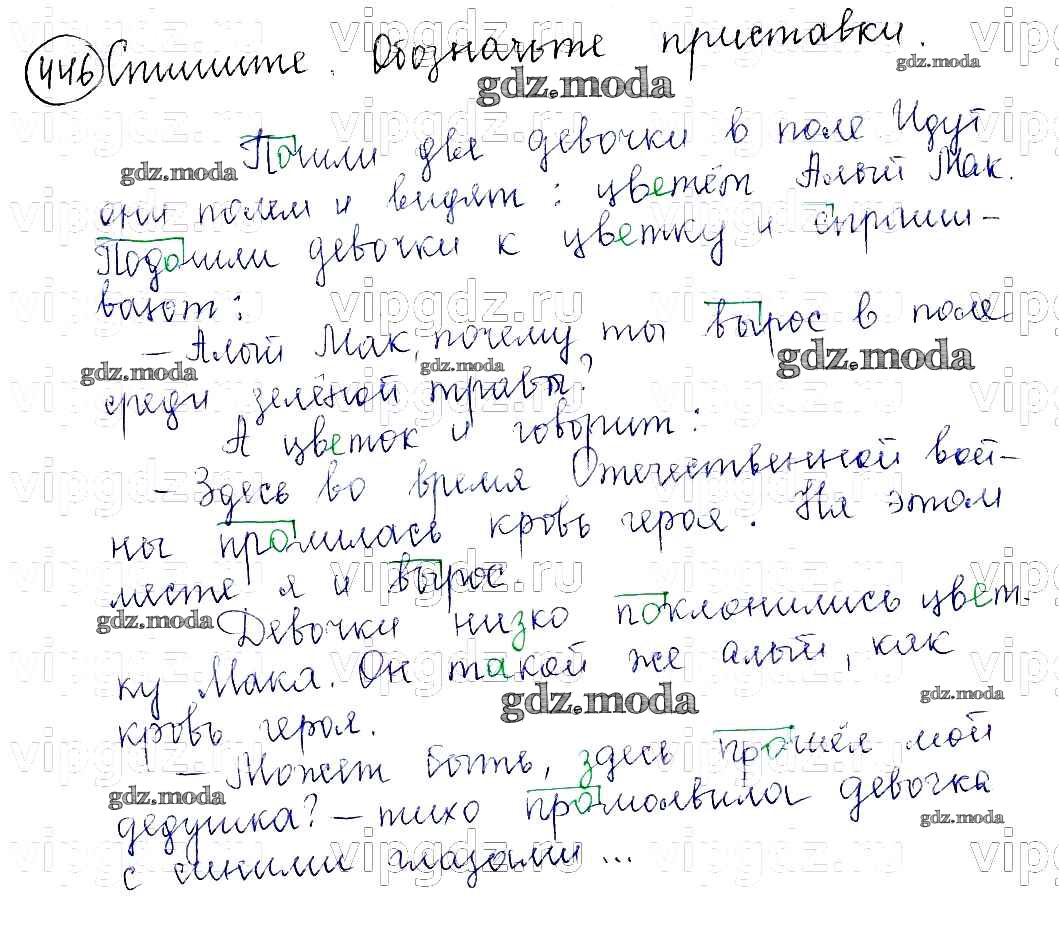 446 Спишите. Обозначьте приставки.
Пошли две девочки в поле Идут
они полем и видят: цветёт Алый Мак.
Подошли девочки к цветку и спраши-
вают:
– Алый Мак, почему ты вырос в поле
среди зелёной травы?
А цветок и говорит:
– Здесь во время Отечественной вой-
ны пролилась кровь героя. На этом
месте я и вырос.
Девочки низко поклонились цвет-
ку Мака. Он такой же алый, как
кровь героя.
– Может быть, здесь прошёл мой
дедушка? – тихо промолвила девочка
с синими глазами...